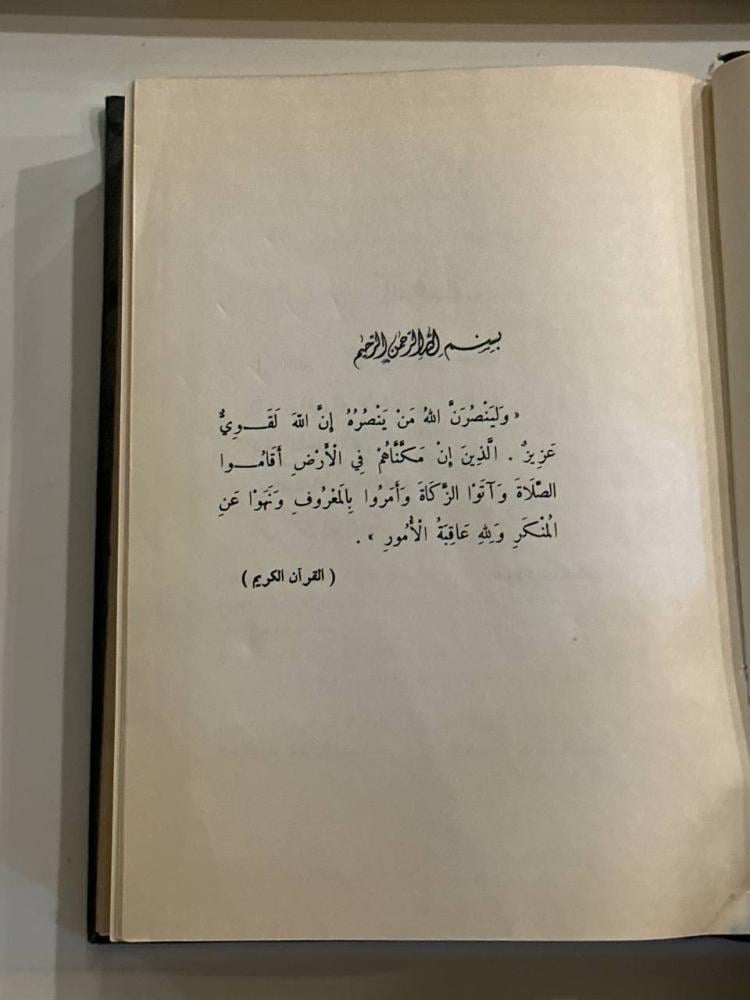 بسم الله الرحمن الرحيم
« وَلَيَنْصُرَنَّ اللهُ مَنْ يَنْصُرُهُ إِنَّ اللهَ لَقَــوِيٌّ
عَزِيزٌ . الَّذِينَ إِنْ مَكَّنَّاهُمْ فِي الْأَرْضِ أَقَامُــوا
الصَّلَاةَ وَآتَوْا الزَّكَاةَ وَأَمَرُوا بِالْمَعْرُوفِ وَنَهَوْا عَنِ
الْمُنْكَرِ وَلِلهِ عَاقِبَةُ الْأُمُورِ » .
( القرآن الكريم )